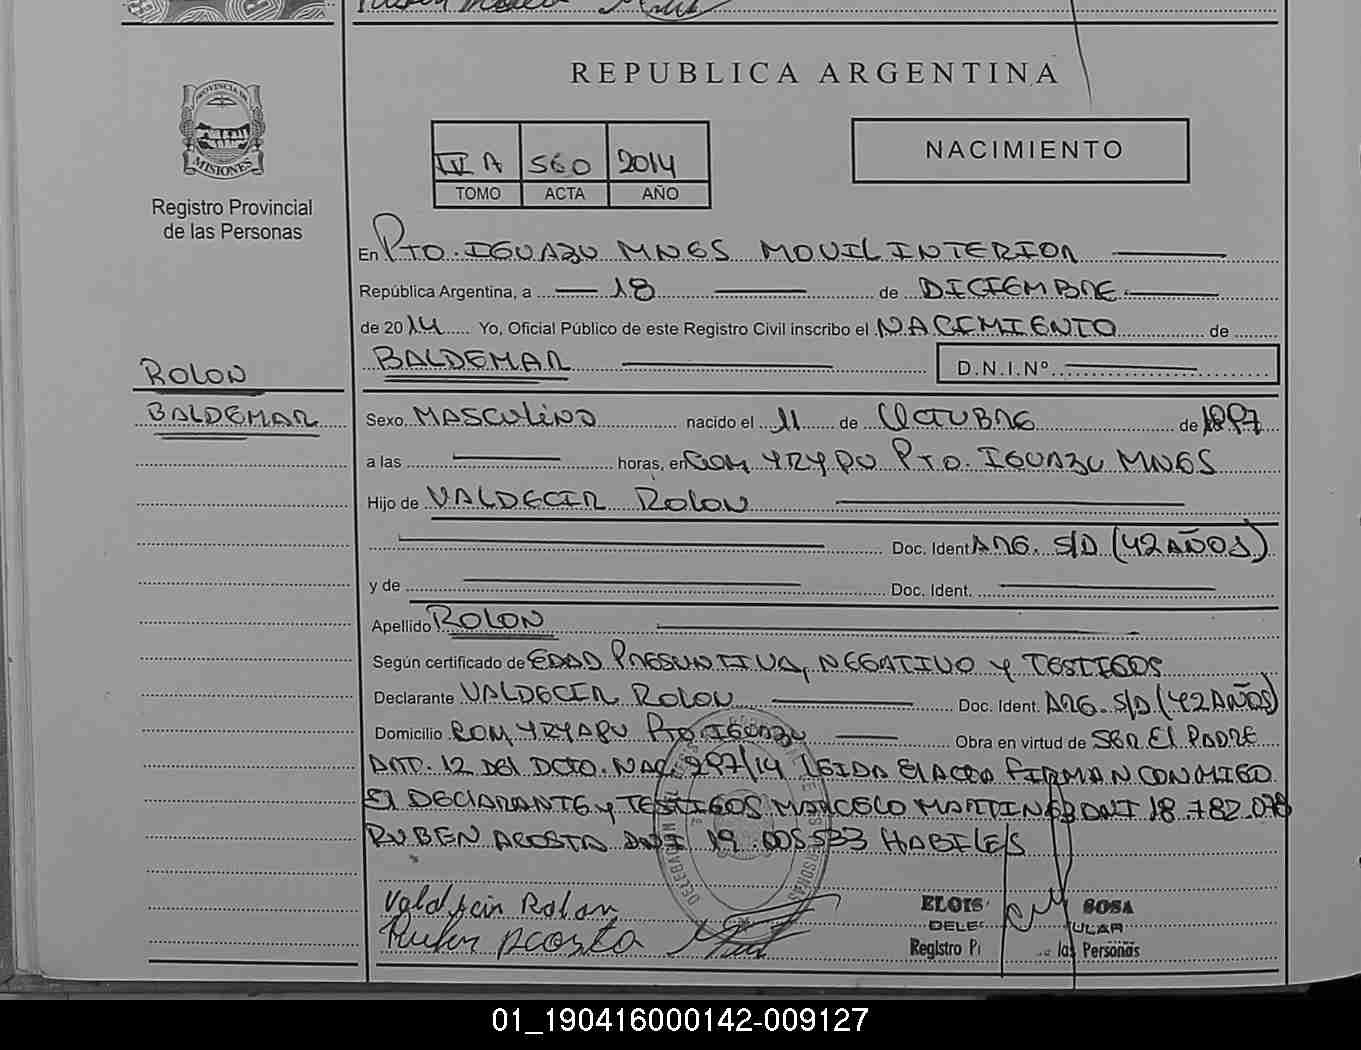 REPUBLICA ARGENTINA
PROVINCIA DE
MISIONES
Registro Provincial
de las Personas
IV A 560 2014
TOMO ACTA AÑO
NACIMIENTO
En PTO. IGUAZU MNES MOVIL INTERIOR
República Argentina, a 18 de DICIEMBRE
de 2014 Yo, Oficial Público de este Registro Civil inscribo el NACIMIENTO de
BALDEMAR D.N.I.Nº
ROLON
BALDEMAR
Sexo MASCULINO nacido el 11 de OCTUBRE de 1997
a las horas, en COM YRYPU PTO. IGUAZU MNES
Hijo de VALDECIR ROLON
Doc. Ident ARG. S/D (42 AÑOS)
y de Doc. Ident.
Apellido ROLON
Según certificado de EDAD PRESUNTIVA, NEGATIVO Y TESTIGOS
Declarante VALDECIR ROLON Doc. Ident. ARG. S/D (42 AÑOS)
Domicilio COM YRYAPU PTO. IGUAZU Obra en virtud de SER EL PADRE
ART. 12 DEL DCTO. NAC. 297/14 LEIDA EL ACTA FIRMAN CONMIGO
EL DECLARANTE y TESTIGOS MARCELO MARTINEZ DNI 18.782.078
RUBEN ACOSTA DNI 19.005533 HABILES
Valdecir Rolon
Ruben Acosta
ELOIS SOSA
DELE ULAR
Registro P las Personas
01_190416000142-009127